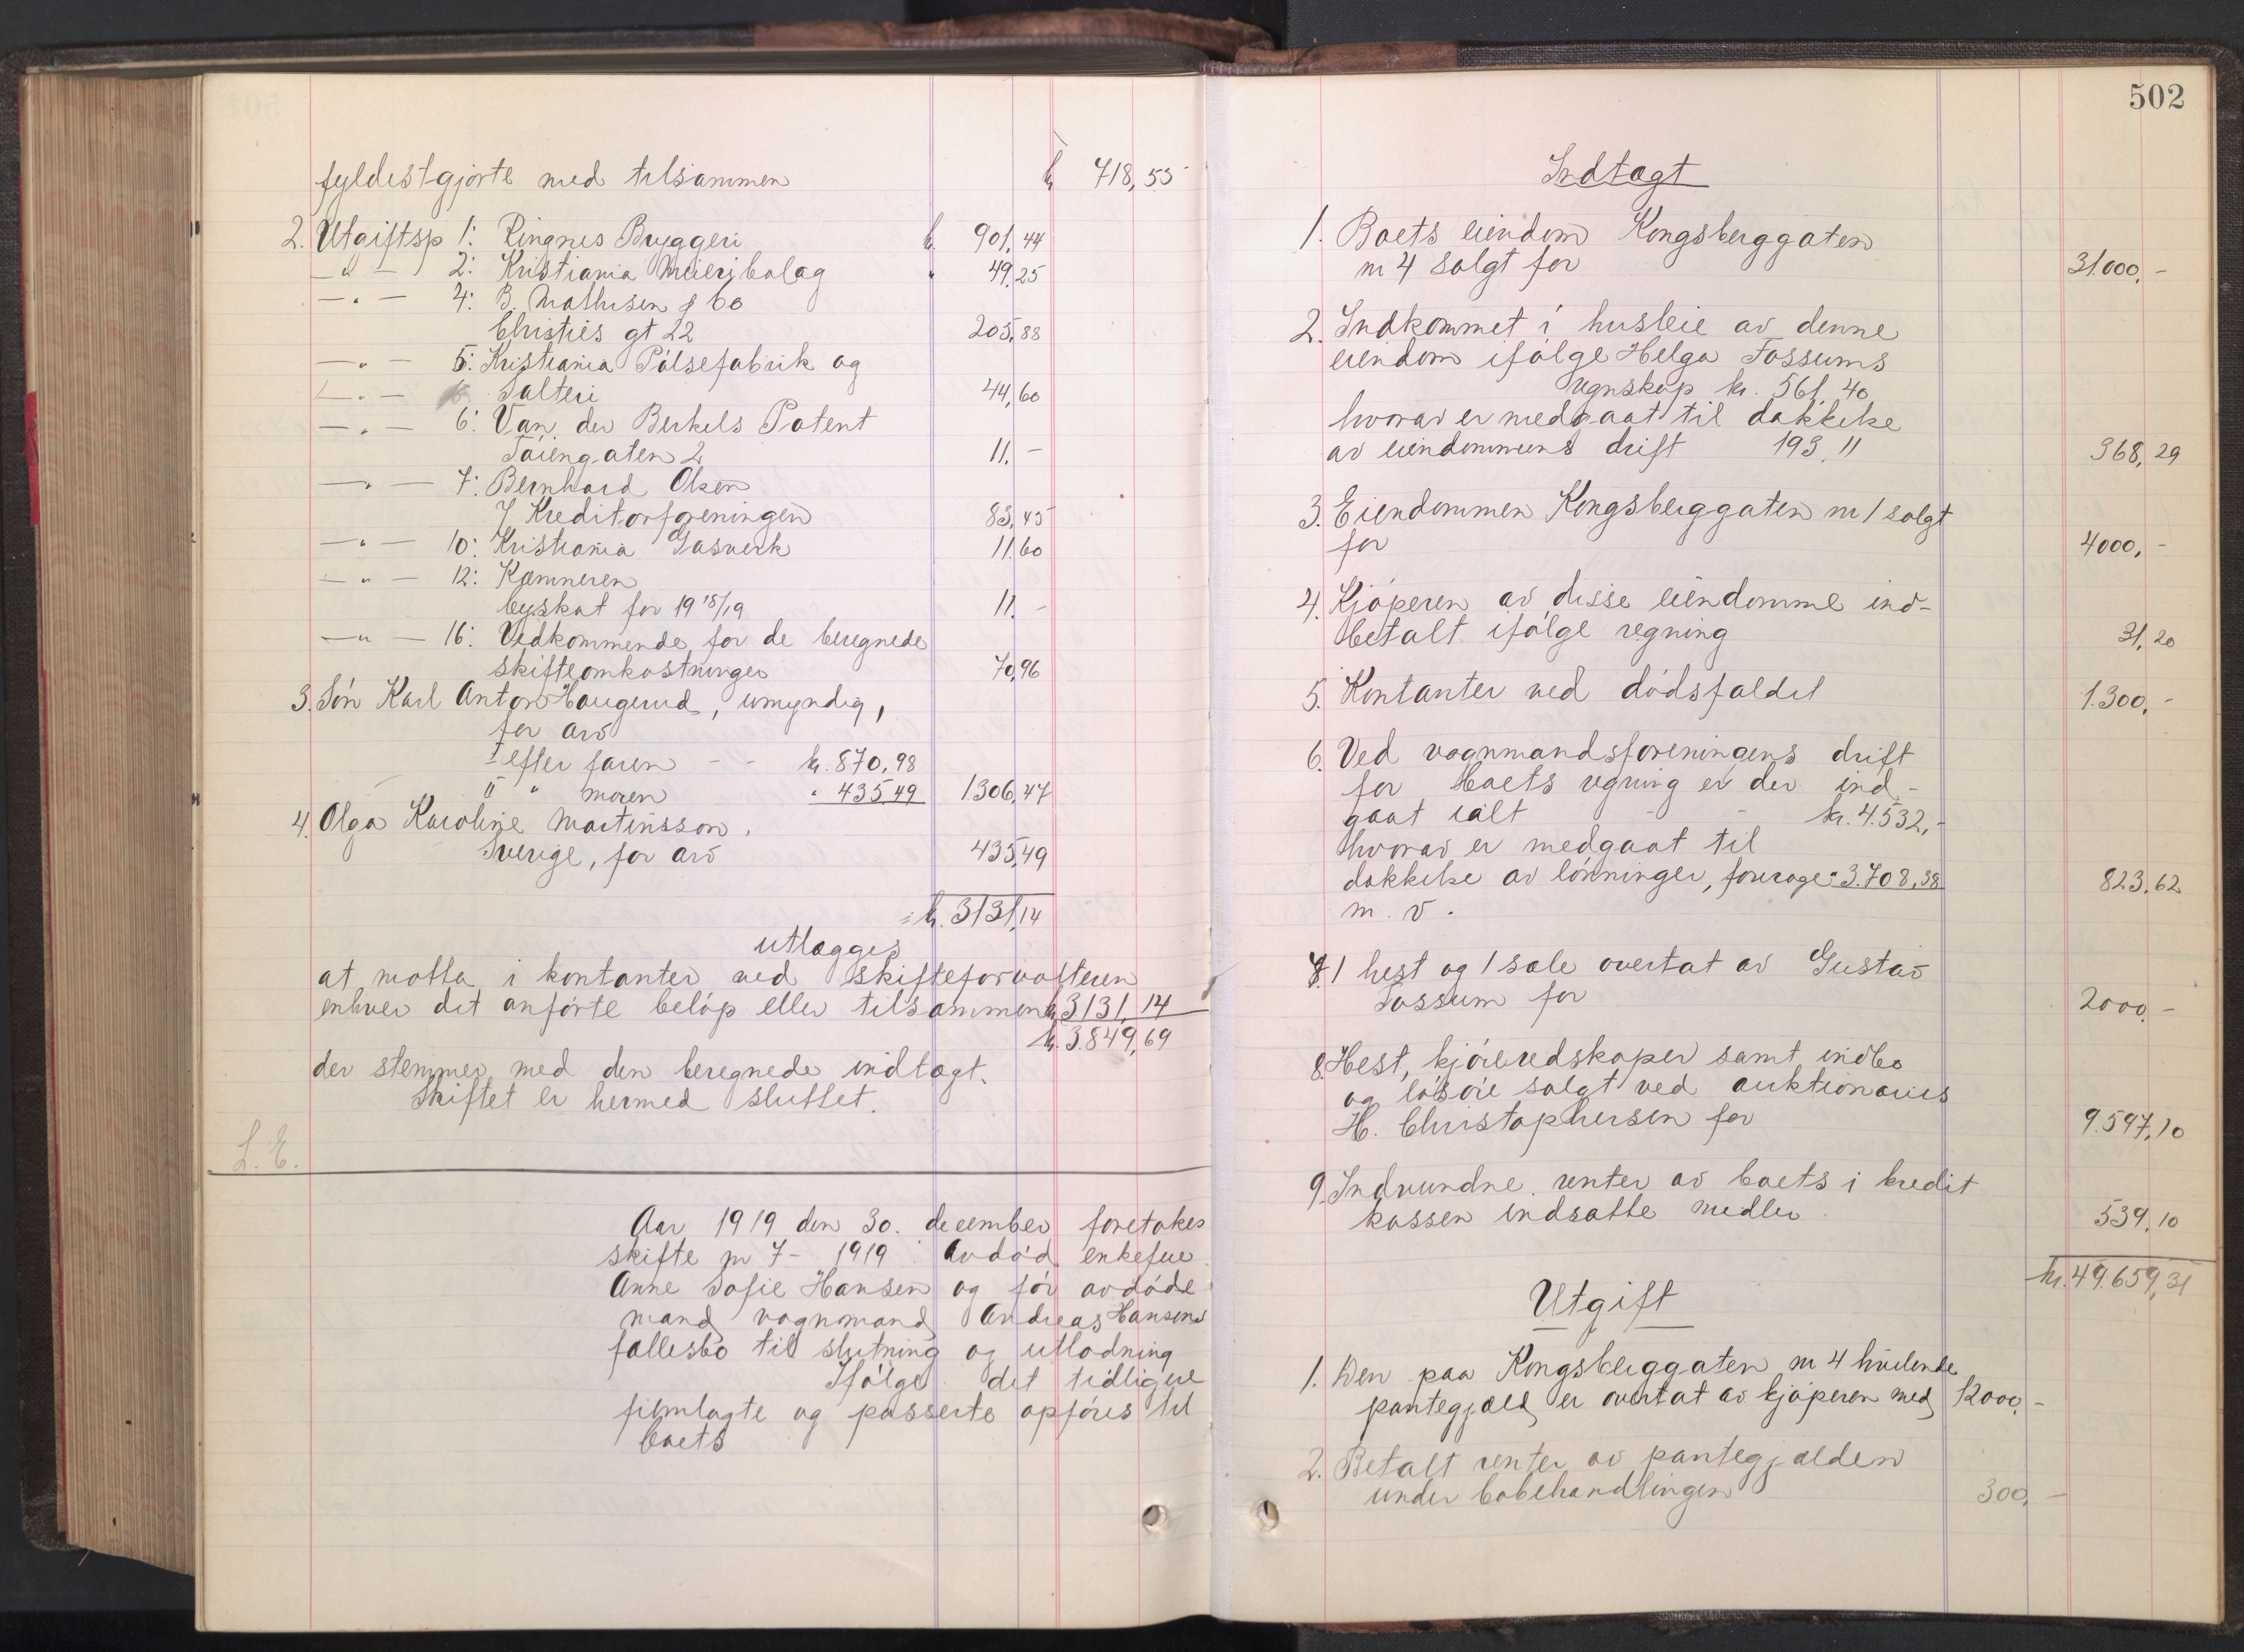 fyldestgjorte med tilsammen kr 718,55
2. Utgiftsp 1: Ringnes Bryggeri kr. 901,44
—"— 2: Kristiania Meieribolag " 49,25
—"— 4: B. Mathisen & Co
Christies gt 22 205,88
—"— 5: Kristiania Pølsefabrik og
—"— Salteri 44,60
—"— 6: Van der Berkels Patent
Tøiengaten 2 11,—
—"— 7: Bernhard Olsen
/ Kreditorforeningen 83,45
—"— 10: Kristiania Gasverk 11,60
—"— 12: Kæmneren
byskat for 1918/19 11,—
—"— 16: Vedkommende for de beregnede
skifteomkostninger 70,96
3. Søn Karl Anton Haugerud, umyndig,
for arv
efter faren - - kr. 870,98
" " moren " 435,49 1306,47
4. Olga Karoline Martinsson.
Sverige, for arv 435,49
kr. 3131,14
utlægges
at motta i kontanter ved skifteforvalteren
enhver det anførte beløp eller tilsammen kr 3131,14
kr. 3.849,69
der stemmer med den beregnede indtægt.
Skiftet er hermed sluttet.
L. E.
Aar 1919 den 30. december foretokes
skifte nr 7- 1919 Avdød enkefrue
Anne Sofie Hansen og før avdøde
mand vognmand Andreas Hansens
fællesbo til slutning og utlodning
Ifølge det tidligere
fremlagte og passerte opføres til
boets
502
Indtægt
1. Boets eiendom Kongsberggaten
nr 4 solgt for 31.000,-
2. Indkommet i husleie av denne
eiendom ifølge Helga Fossums
regnskap kr. 561,40
hvorav er medgaat til dækkelse
av eiendommens drift 193,11 368,29
3. Eiendommen Kongsberggaten nr 1 solgt
for 4000,-
4. Kjøperen av disse eiendomme ind-
betalt ifølge regning 31,20
5. Kontanter ved dødsfaldet 1.300,-
6. Ved vognmandsforeningens drift
for boets regning er der ind-
gaat ialt - - kr. 4.532,-
hvorav er medgaat til
dækkelse av lønninger, fourage " 3.708,38 823,62
m. v.
7. 1 hest og 1 sæle overtat av Gustav
Fossum for 2000,-
8. Hest, kjøreredskaper samt indbo
og løsøre solgt ved auktionarius
H. Christophersen for 9.597,10
9. Indvundne renter av boets i kredit
kassen indsatte midler 539,10
kr. 49.659,31
Utgift
1. Den paa Kongsberggaten nr 4 hvilende
pantegjæld er overtat av kjøperen med 12000,-
2. Betalt renter av pantegjælden
under bobehandlingen 300,—